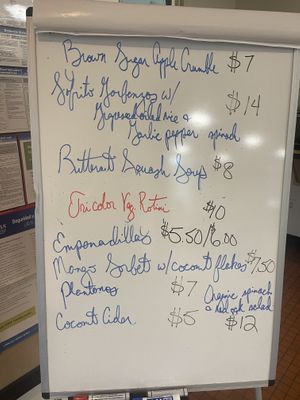 Brown Sugar Apple Crumble $7
Sofrito Garbanzos w/ $14
Grapeseed oiled rice &
Garlic pepper spinach
Butternut Squash Soup $8
Tricolor Veg. Rotini $10
Empanadillas $5.50/6.00
Mango Sorbet w/ coconut flakes $7.50
Plantanos $7
Organic spinach
& red oak salad
$12
Coconut Cider $5